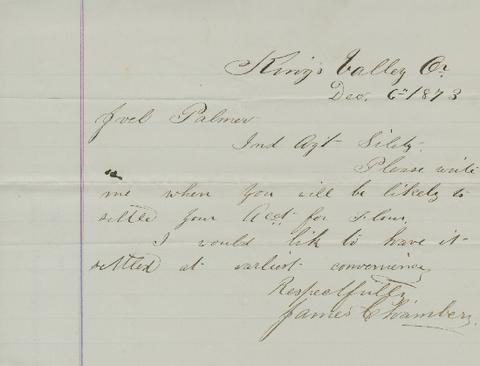 King's Valley Or.
Dec. 6th 1873
Joel Palmer
Ind Agt Siletz.
Please write
me when you will be likely to
settle your Acct for Flour.
I would lik to have it
settled at earliest convenience
Respectfully
James Chambers.